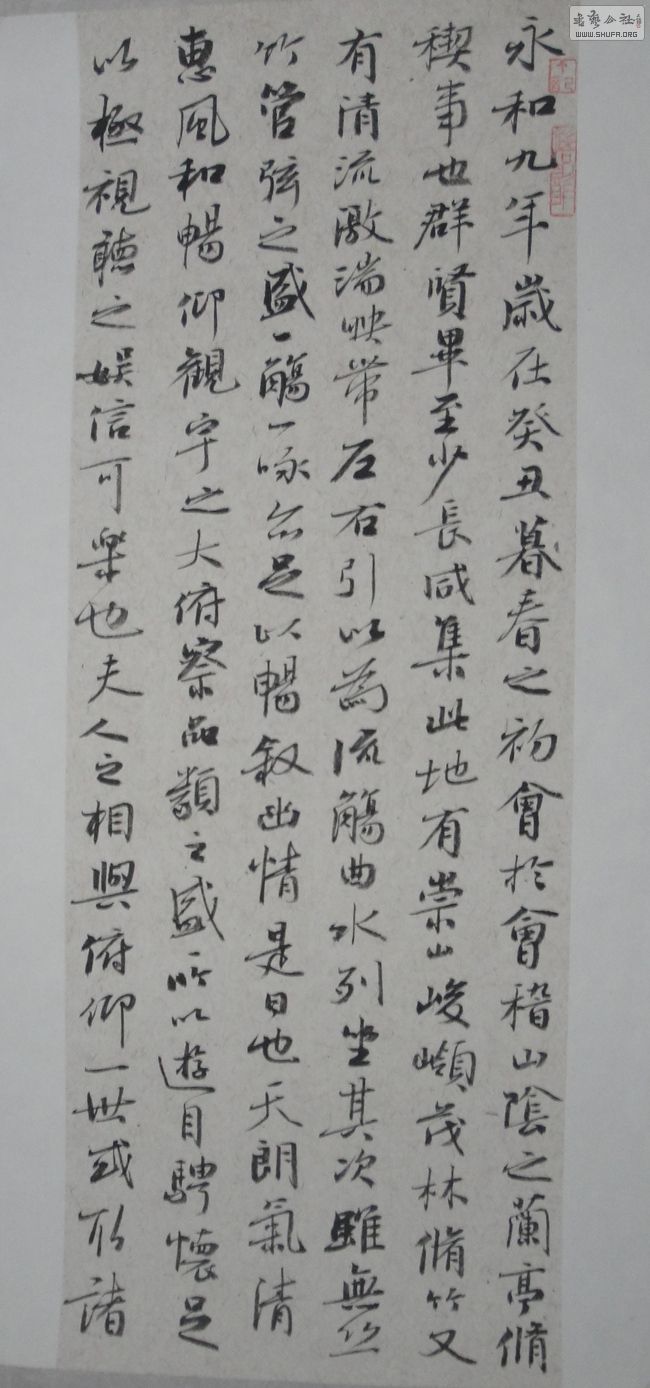 永和九年歲在癸丑暮春之初會於會稽山陰之蘭亭脩
稧事也群賢畢至少長咸集此地有崇山峻嶺茂林脩竹又
有清流激湍映帶左右引以為流觴曲水列坐其次雖無絲
竹管弦之盛一觴一詠亦足以暢敘幽情是日也天朗氣清
惠風和暢仰觀宇之大俯察品類之盛所以遊目騁懷足
以極視聽之娛信可樂也夫人之相與俯仰一世或取諸
WWW.SHUFA.ORG